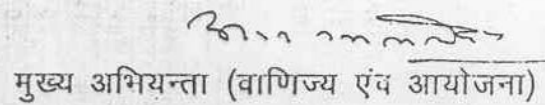 मुख्य अभियन्ता (वाणिज्य एंव आयोजना)